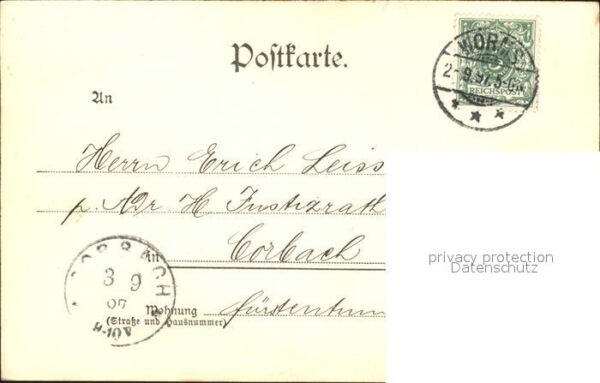 Postkarte.
WORMS
2-9.97.5-6N.
REICHSPOST
An
Herrn Erich Leiss
p. Adr H Justizrath
in Corbach
CORBACH
3 9
97
Wohnung
(Straße und Hausnummer)
Fürstentum
privacy protection
Datenschutz